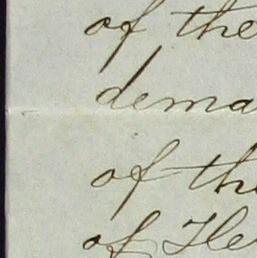 of the
dema
of th
of He